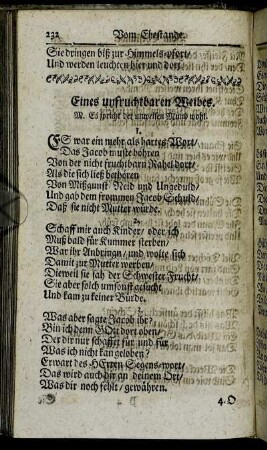 232 Vom Ehestande.
Sie dringen biß zur Himmels-pfort/
Und werden leuchten hier und dort.
Eines unfruchtbaren Weibes.
M. Es spricht der unweisen Mund wohl.
1.
ES war ein mehr als hartes Wort/
Das Jacob muste hören
Von der nicht fruchtbarn Rahel dort/
Als die sich ließ bethören
Von Mißgunst/ Neid und Ungeduld/
Und gab dem frommen Jacob Schuld/
Daß sie nicht Mutter würde.
2.
Schaff mir auch Kinder/ oder ich
Muß bald für Kummer sterben/
War ihr Andringn/ und wolte sich
Damit zur Mutter werben/
Dieweil sie sah der Schwester Frucht/
Sie aber solch umsonst gesucht
Und kam zu keiner Bürde.
3.
Was aber sagte Jacob ihr?
Bin ich denn GOtt dort oben/
Der dir nur schaffet für und für
Was ich nicht kan geloben?
Erwart des HErren Segens-wort/
Das wird auch dir an deinem Ort/
Was dir noch fehlt/ gewähren.
4. O